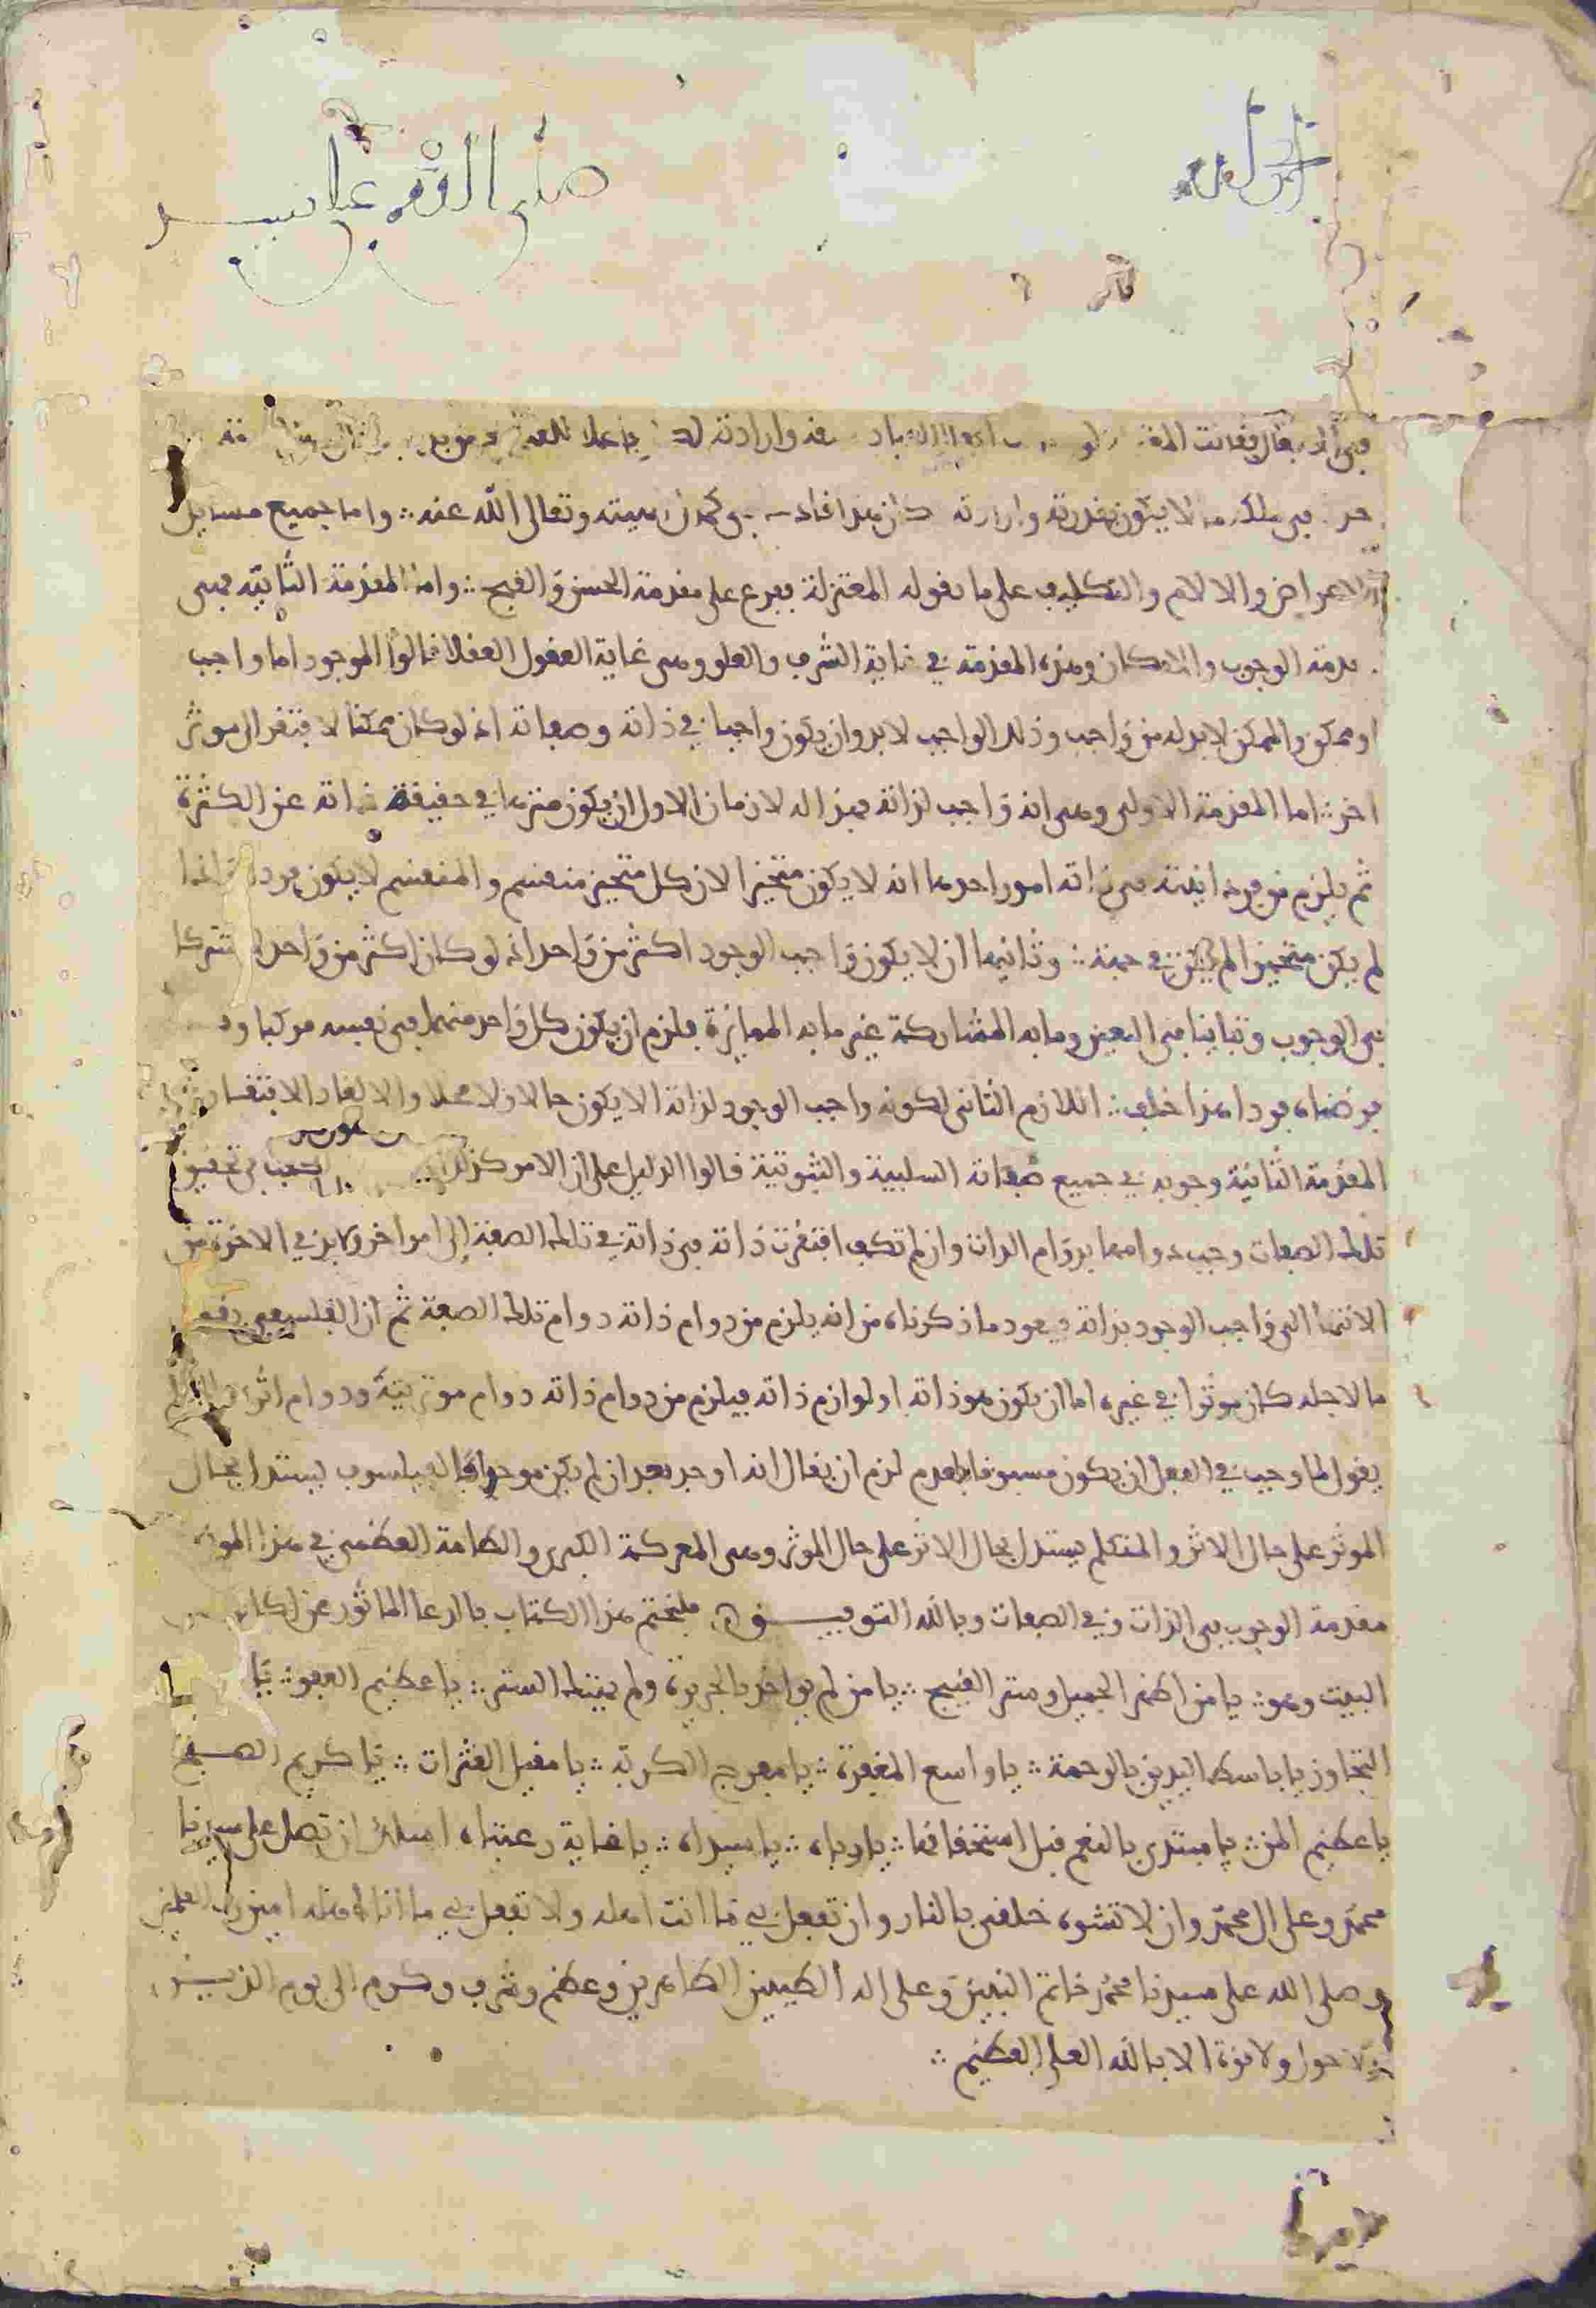 الحمد لله
صلى الله على
فقالت المعتزلة لو وارادته فاعلا للقبيح
في ملكه ما لا يكون بقدرته وارادته تعالى الله عنه ∴ واما جميع مسايل
الاعواض والالام والتكليف على ما يقوله المعتزلة ففرع على مقدمة الحسن والقبيح ∴ واما المقدمة الثانية فهى
مقدمة الوجوب والامكان وهذه المقدمة في غاية الشرف والعلو وهى غاية العقول العقلا قالوا الموجود اما واجب
او ممكن والممكن لابد له من واجب وذلك الواجب لابد وان يكون واجبا في ذاته وصفاته اذ لو كان ممكنا لافتقر الى موثر
اخر ∴ اما المقدمة الاولى وهى انه واجب لذاته فهذا له لازمان الاول ان يكون منزها في حقيقة ذاته عن الكثرة
ثم يلزم من فردانيته فى ذاته امور احدها انه لا يكون متحيزا لان كل متحيز منقسم والمنقسم لا يكون فردا واذا
لم يكن متحيزا لم يكن في جهة ∴ وثانيها ان لا يكون واجب الوجود اكثر من واحد اذ لو كان اكثر من واحد لاشتركا
فى الوجوب وتباينا فى التعين وما به المشاركة غير ما به الممايزة فيلزم ان يكون كل واحد منهما فى نفسه مركبا وقد
فرضناه فردا هذا خلف ∴ اللازم الثانى لكونه واجب الوجود لذاته الا يكون حالا ولا محلا والا لعاد الافتقار
المقدمة الثانية وجوبه في جميع صفاته السلبية والثبوتية قالوا الدليل على ان الامر كذلك فى تحقيق
تلك الصفات وجب دوامها بدوام الذات وان لم تكف افتقرت ذاته فى ذاته في تلك الصفة إلى امر اخر ولابد في الاخرة من
الانتها الى واجب الوجود بذاته ويعود ما ذكرناه من انه يلزم من دوام ذاته دوام تلك الصفة ثم ان الفلسفى
ما لاجله كان موثرا في غيره اما ان يكون هو ذاته او لوازم ذاته فيلزم من دوام ذاته دوام موثريته ودوام اثره والمتكلم
يقول لما وجب في الفعل ان يكون مسبوقا بالعدم لزم ان يقال انه اوجد بعد ان لم يكن موجدا فالفيلسوف يستدل بحال
الموثر على حال الاثر والمتكلم يستدل بحال الاثر على حال الموثر وهى المعركة الكبرى والطامة العظمى في هذا
مقدمة الوجوب فى الذات وفي الصفات وبالله التوفيـــق فلنختم هذا الكتاب بالدعا الماثور عن اكابر
البيت وهو ∴ يا من اظهر الجميل وستر القبيح ∴ يا من لم يواخذ بالجريرة ولم يهتك الستر ∴ يا عظيم العفو ∴ يا
التجاوز يا باسط اليدين بالرحمة ∴ يا واسع المغفرة ∴ يا مفرج الكربة ∴ يا مقيل العثرات ∴ يا كريم الصفح
يا عظيم المن ∴ يا مبتدى بالنعم قبل استحقاقها ∴ يا رباه ∴ يا سيداه ∴ يا غاية رغبتاه اسئلك ان تصل على سيدنا
محمد وعلى ال محمد وان لا تشوه خلقى بالنار وان تفعل بى ما انت اهله ولا تفعل بى ما انا اهله امين رب العلمين
وصلى الله على سيدنا محمد خاتم النبيين وعلى اله الطيبين الطاهرين وعظم وشرف وكرم الى يوم الدين
ولا حول ولا قوة الا بالله العلى العظيم ∴